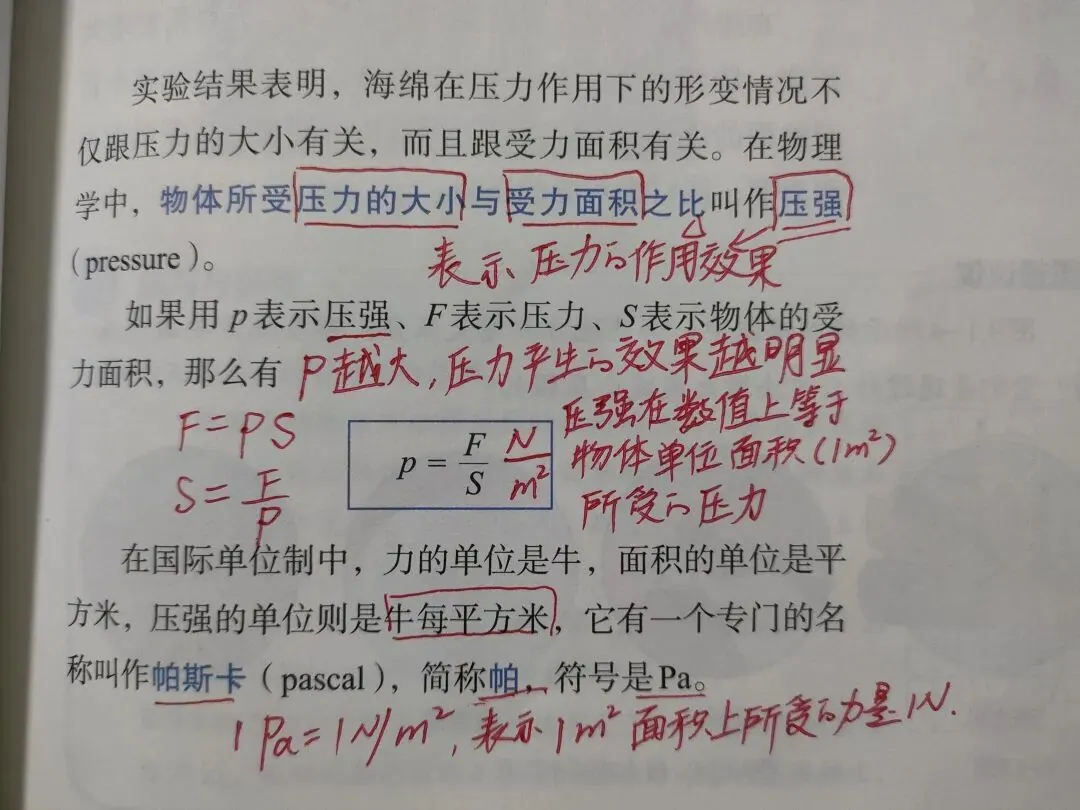 实验结果表明，海绵在压力作用下的形变情况不
仅跟压力的大小有关，而且跟受力面积有关。在物理
学中，物体所受压力的大小与受力面积之比叫作压强
（pressure）。
表示压力的作用效果
如果用 p 表示压强、F 表示压力、S 表示物体的受
力面积，那么有
P越大，压力产生的效果越明显
F=PS
S=F/P
p = F/S N/m²
压强在数值上等于
物体单位面积(1m²)
所受的压力
在国际单位制中，力的单位是牛，面积的单位是平
方米，压强的单位则是牛每平方米，它有一个专门的名
称叫作帕斯卡（pascal），简称帕，符号是Pa。
1 Pa=1N/m²，表示1m²面积上所受的力是1N.